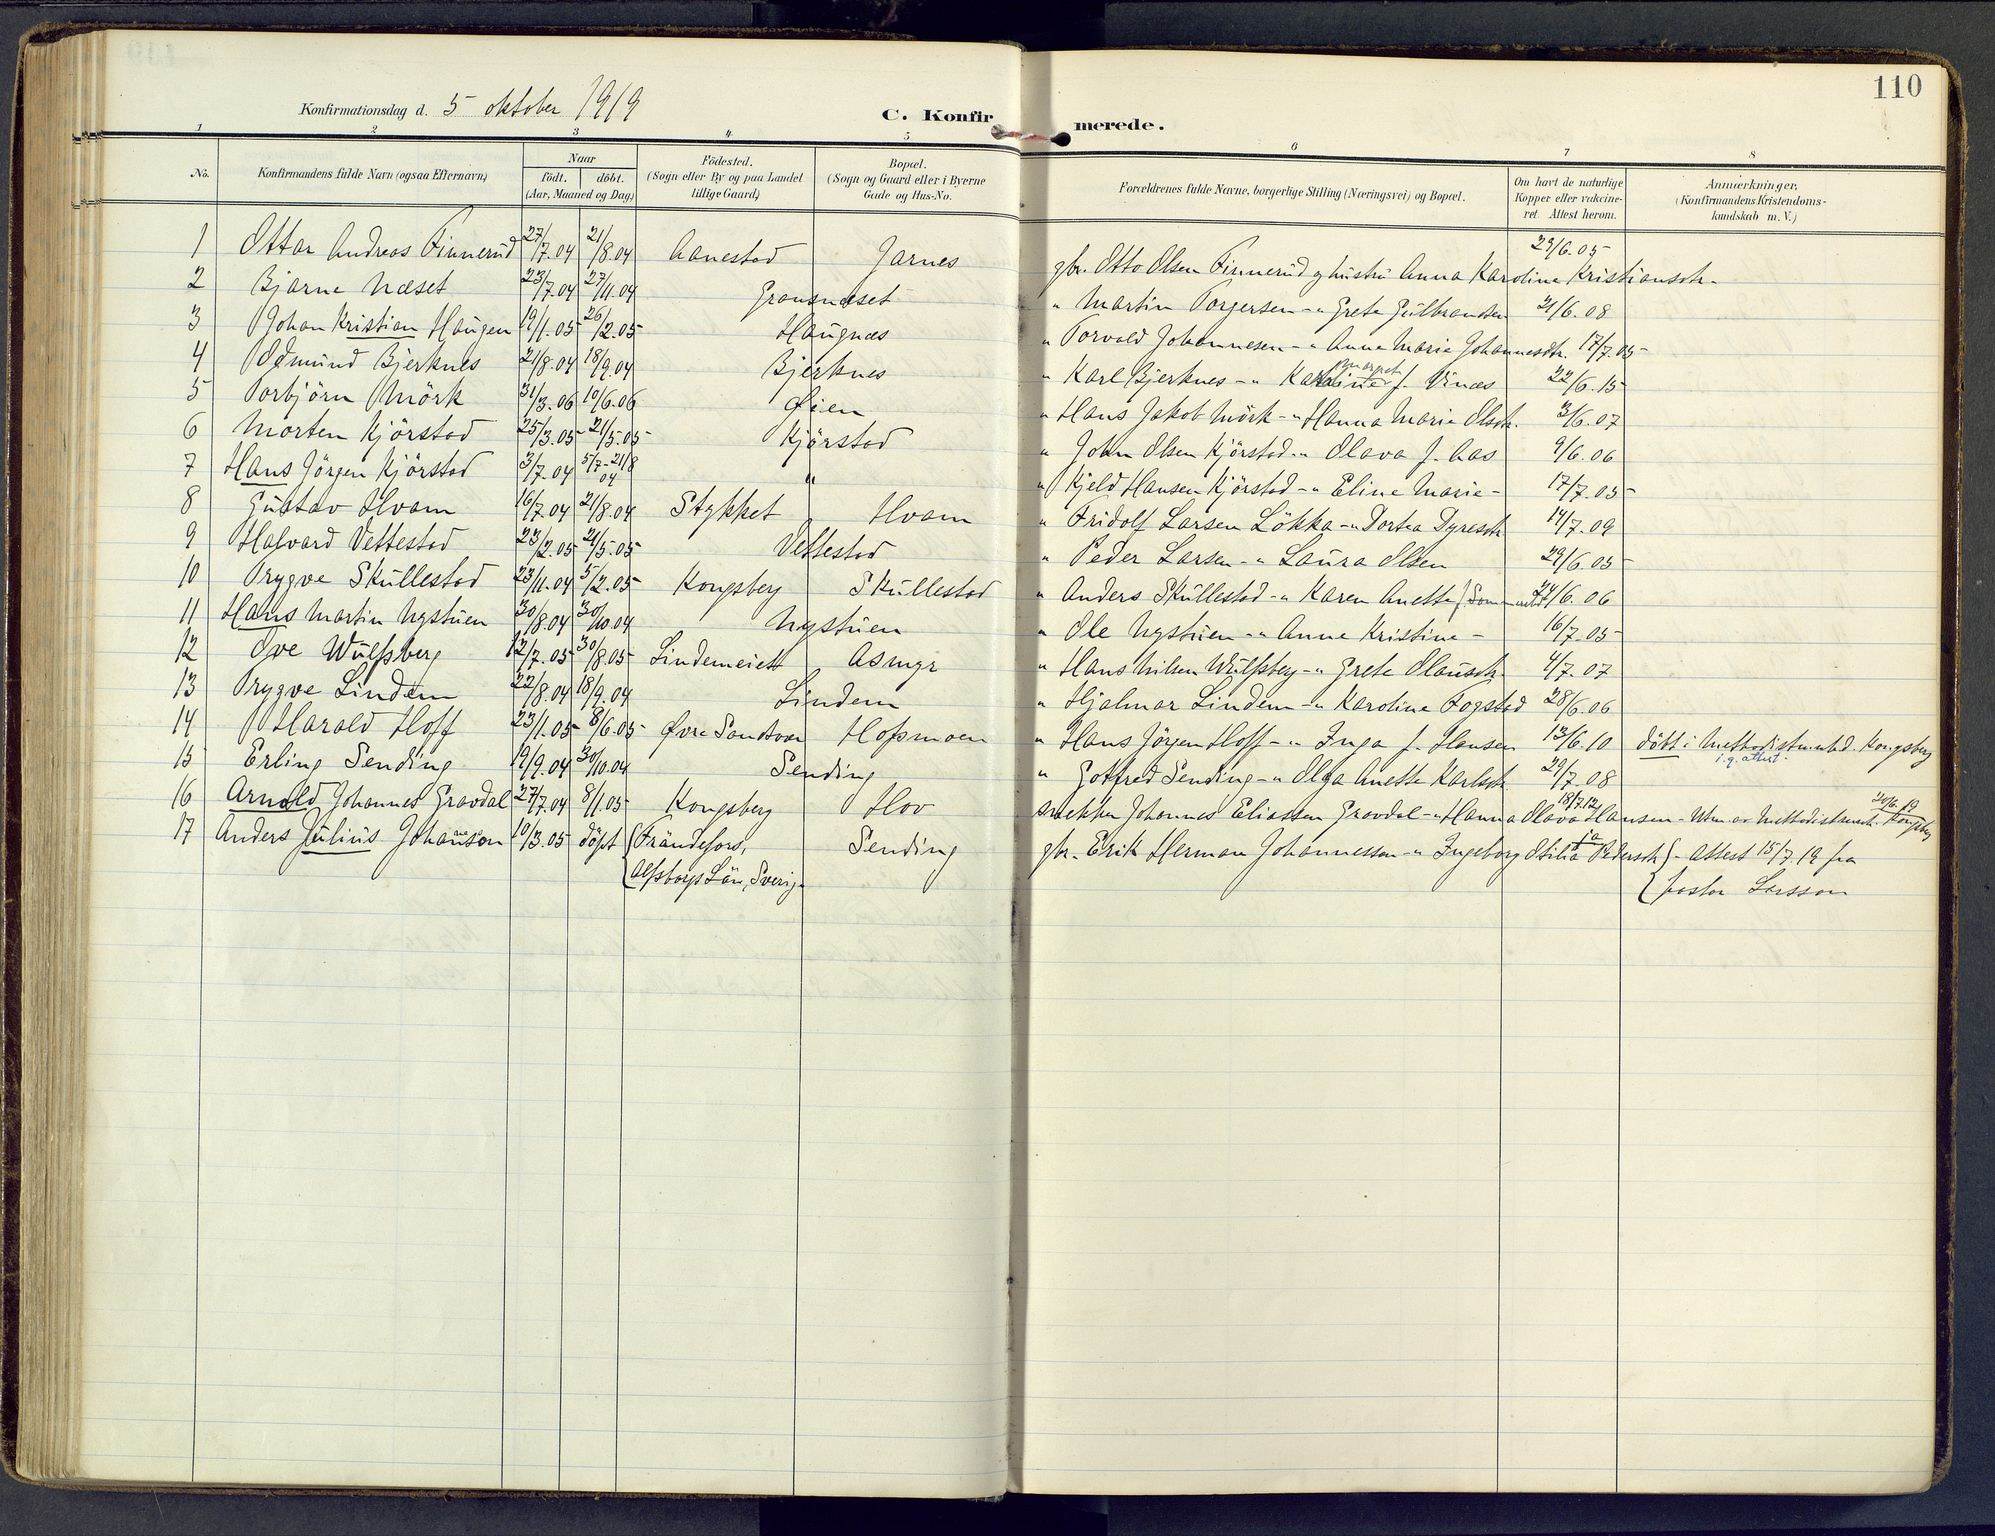 110
Konfirmationsdag d. 5 oktober 1919
C. Konfirmerede.
1 2 3 4 5 6 7 8
No. Konfirmandens fulde Navn (ogsaa Efternavn) Naar födt. döbt. (Aar, Maaned og Dag) Födested. (Sogn eller By og paa Landet tillige Gaard) Bopæl. (Sogn og Gaard eller i Byerne Gade og Hus-No. Forældrenes fulde Navne, borgerlige Stilling (Næringsvei) og Bopæl. Om havt de naturlige Kopper eller vakcineret. Attest herom. Anmærkninger. (Konfirmandens Kristendomskundskab m. V.)
1 Ottar Andreas Finnerud 27/7.04 21/8.04 Aanestad Jarnes gbr. Otto Olsen Finnerud og hustru Anna Karoline Kristiansdtr. 29/6.05
2 Bjarne Næset 23/7.04 27/11.04 Gransnæset " Martin Torgersen - " Grete Gulbrandsen 21/6.08
3 Johan Kristian Haugen 19/1.05 26/2.05 Haugnæs " Torvald Johannesen - " Anne Marie Johannesdtr. 17/7.05
4 Edmund Bjerknes 21/8.04 18/9.04 Bjerknes " Karl Bjerknes - " f. Vinæs 22/6.15
5 Torbjörn Mörk 31/3.06 10/6.06 Øien " Hans Jakob Mörk - " Hanna Marie Olsdtr. 3/6.07
6 Morten Kjörstad 25/3.05 21/5.05 Kjörstad " John Olsen Kjörstad - " Olava f. Aas 9/6.06
7 Hans Jörgen Kjörstad 3/7.04 5/7-21/8 04 " " Kjeld Hansen Kjörstad - " Eline Marie - 17/7.05
8 Gustav Hvam 16/7.04 21/8.04 Stykket Hvam " Fridolf Larsen Lökka - " Dortea Dyresdtr. 14/7.09
9 Halvard Vettestad 23/2.05 21/5.05 Vettestad " Peder Larsen - " Laura Olsen 29/6.05
10 Trygve Skullestad 23/11.04 5/2.05 Kongsberg Skullestad " Anders Skullestad - " Karen Anette 24/6.06
11 Hans Martin Nystuen 30/8.04 30/10.04 Nystuen " Ole Nystuen - " Anne Kristine - 16/7.05
12 Ove Wulfsberg 12/7.05 30/8.05 Lindemeiett Asmyr " Hans Nilsen Wulfsberg - " Grete Olausdtr. 4/7.07
13 Trygve Lindem 22/8.04 18/9.04 Lindem " Hjalmar Lindem - " Karoline Fogstad 28/6.06
14 Harald Hoff 23/1.05 8/6.05 Øvre Sandsvær Hofsmoen " Hans Jörgen Hoff - " Inga f. Hansen 13/6.10 döbt i Methodistmenh. Kongsberg
i.g. attest.
15 Erling Sending 19/9.04 30/10.04 Sending " Gotfred Sending - " Olga Anette Karlsdtr. 29/7.08
16 Arnold Johannes Gravdal 27/7.04 8/1.05 Kongsberg Hov snekker Johannes Eliassen Gravdal - " Hanna Olava Hansen 18/7.12 - Utm. av Methodistmenh. Kongsberg 30/6.19
17 Anders Julius Johanson 10/3.05 döpt Frändefors, Sending gbr. Erik Herman Johannesson - " Ingeborg Otilia Pedersdtr. ja - attest 15/7.19 fra
Elfsborgs Län, Sverige pastor Larsson